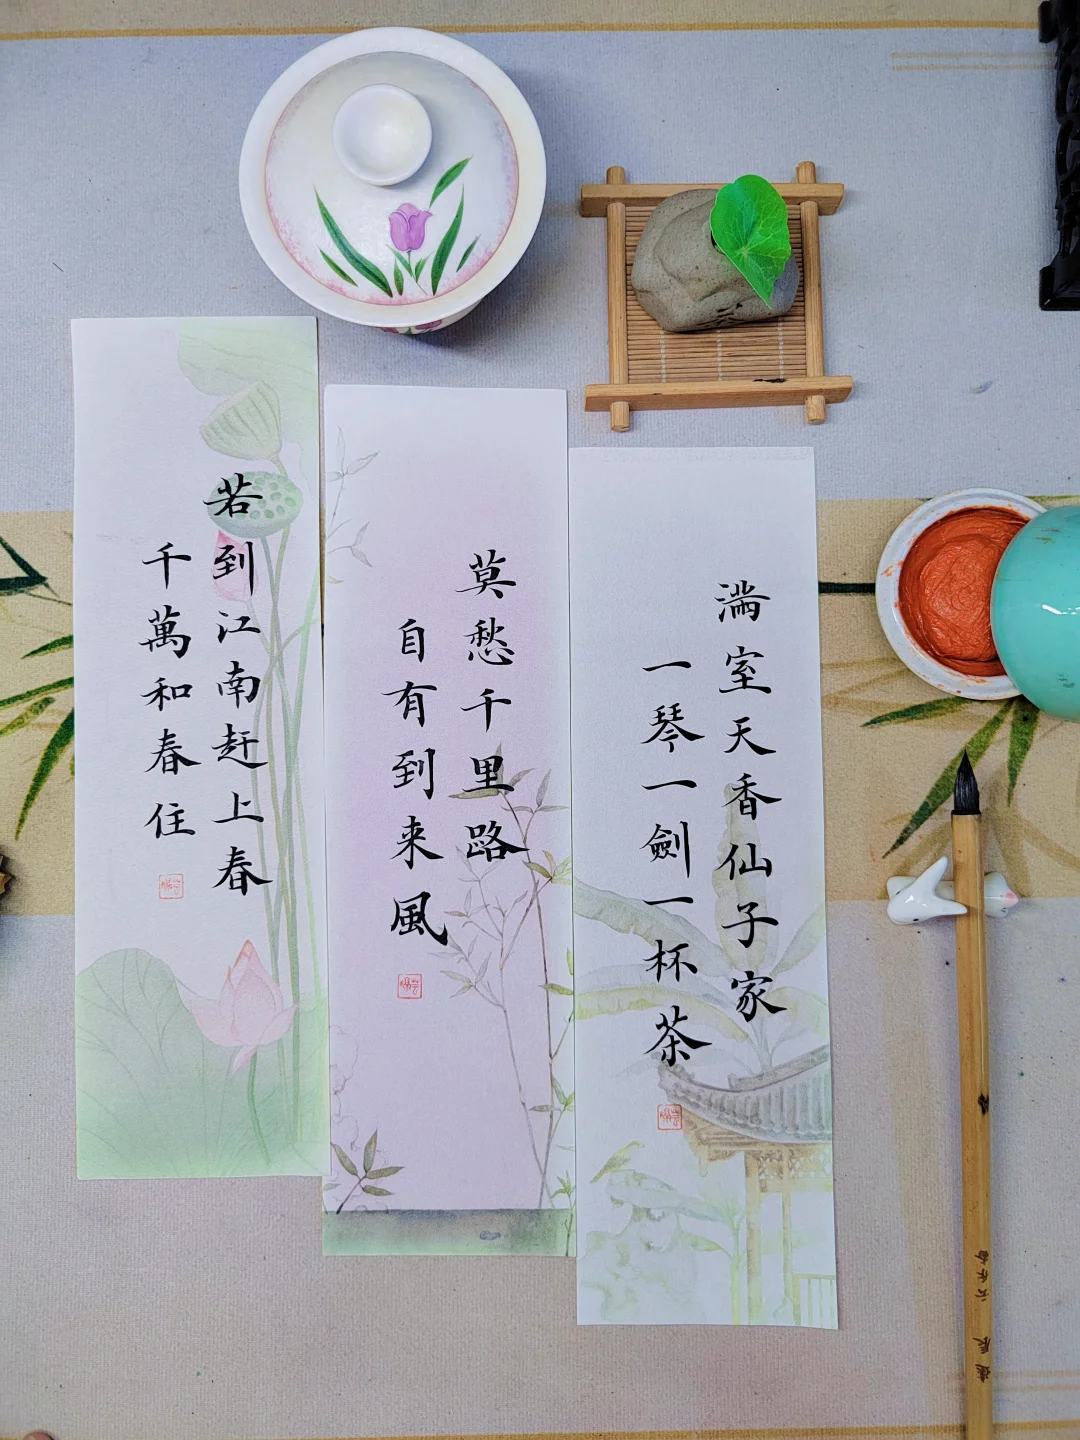 满室天香仙子家
一琴一劍一杯茶
莫愁千里路
自有到来風
若到江南赶上春
千萬和春住